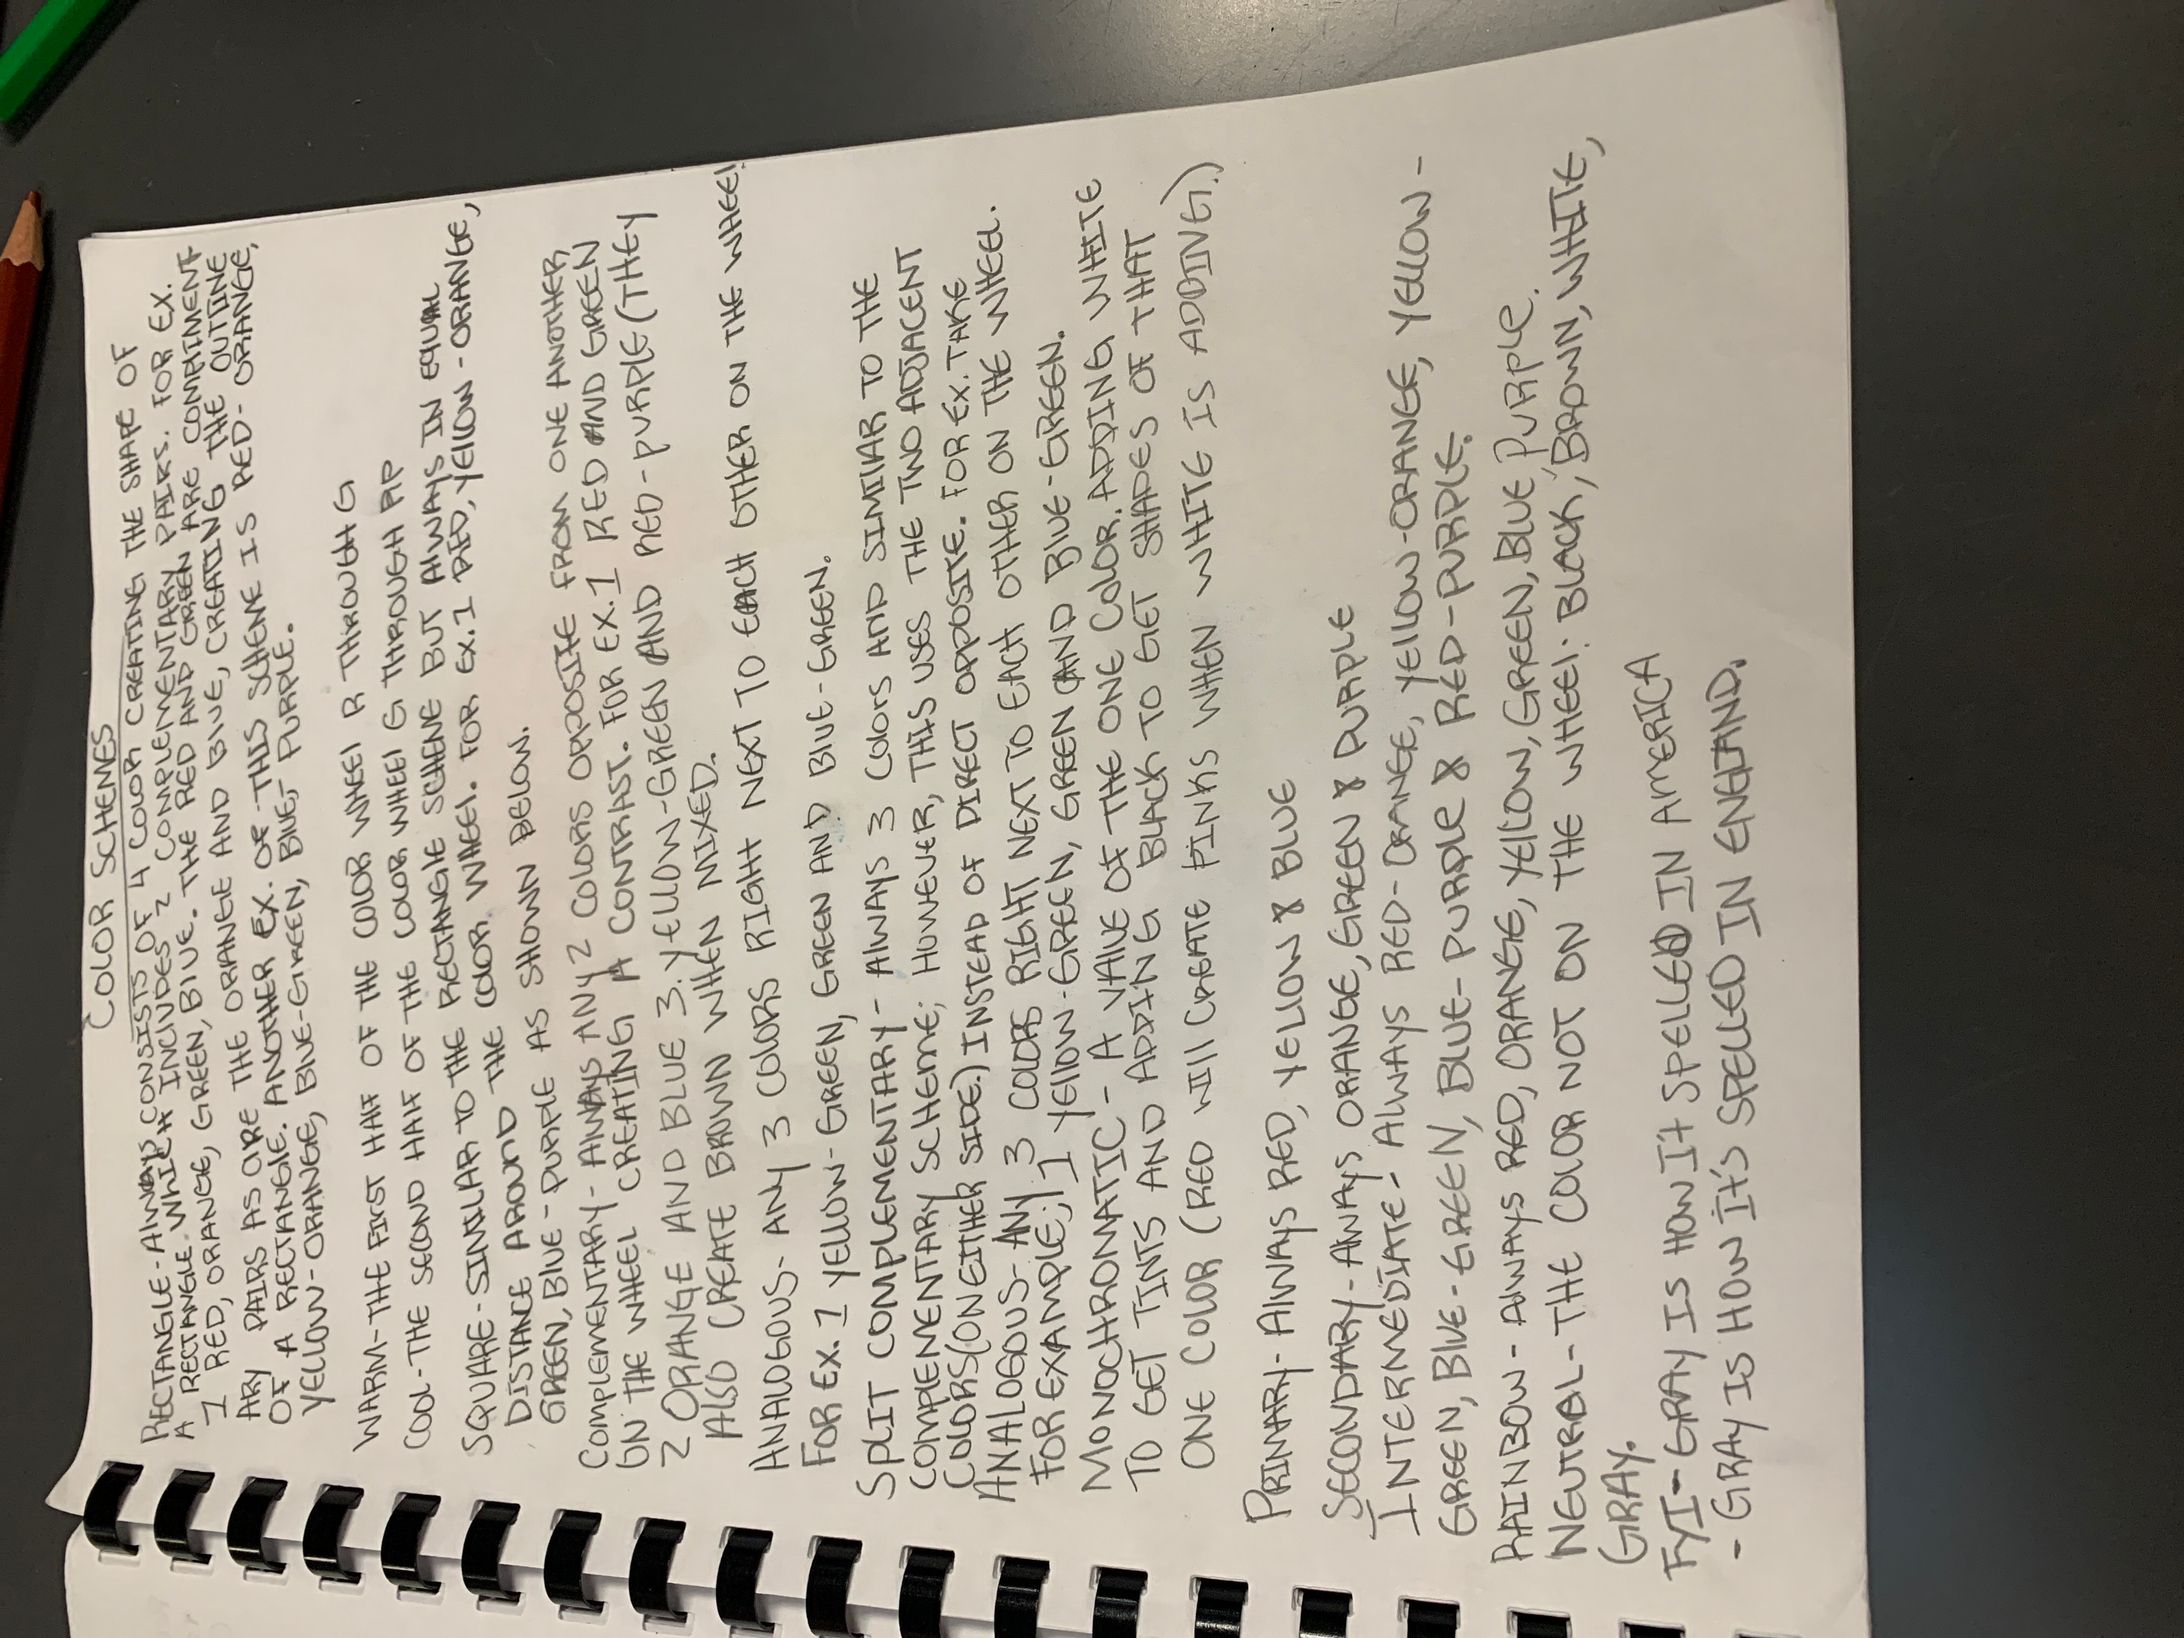 COLOR SCHEMES
RECTANGLE - ALWAYS CONSISTS OF 4 COLOR CREATING THE SHAPE OF
A RECTANGLE WHICH INCLUDES 2 COMPLEMENTARY PAIRS. FOR EX.
1 RED, ORANGE, GREEN, BLUE. THE RED AND GREEN ARE COMPLIMENT
ARY PAIRS AS ARE THE ORANGE AND BLUE, CREATING THE OUTLINE
OF A RECTANGLE. ANOTHER EX. OF THIS SCHEME IS RED-ORANGE,
YELLOW-ORANGE, BLUE-GREEN, BLUE-PURPLE.
WARM-THE FIRST HALF OF THE COLOR WHEEL R THROUGH G
COOL-THE SECOND HALF OF THE COLOR WHEEL G THROUGH RP
SQUARE-SIMILAR TO THE RECTANGLE SCHEME BUT ALWAYS IN EQUAL
DISTANCE AROUND THE COLOR WHEEL. FOR EX. 1 RED, YELLOW-ORANGE,
GREEN, BLUE-PURPLE AS SHOWN BELOW.
COMPLEMENTARY-ALWAYS ANY 2 COLORS OPPOSITE FROM ONE ANOTHER
ON THE WHEEL CREATING A CONTRAST. FOR EX. 1 RED AND GREEN
2 ORANGE AND BLUE 3. YELLOW-GREEN AND RED-PURPLE (THEY
ALSO CREATE BROWN WHEN MIXED.
ANALOGOUS- ANY 3 COLORS RIGHT NEXT TO EACH OTHER ON THE WHEEL.
FOR EX. 1 YELLOW-GREEN, GREEN AND BLUE-GREEN.
SPLIT COMPLEMENTARY- ALWAYS 3 COLORS AND SIMILAR TO THE
COMPLEMENTARY SCHEME; HOWEVER, THIS USES THE TWO ADJACENT
COLORS (ON EITHER SIDE.) INSTEAD OF DIRECT OPPOSITE. FOR EX. TAKE
ANALOGOUS- ANY 3 COLORS RIGHT NEXT TO EACH OTHER ON THE WHEEL.
FOR EXAMPLE; 1 YELLOW-GREEN, GREEN AND BLUE-GREEN.
MONOCHROMATIC- A VALUE OF THE ONE COLOR. ADDING WHITE
TO GET TINTS AND ADDING BLACK TO GET SHADES OF THAT
ONE COLOR (RED WILL CREATE PINKS WHEN WHITE IS ADDING.)
PRIMARY- ALWAYS RED, YELLOW & BLUE
SECONDARY-ALWAYS ORANGE, GREEN & PURPLE
INTERMEDIATE- ALWAYS RED-ORANGE, YELLOW-ORANGE, YELLOW-
GREEN, BLUE-GREEN, BLUE-PURPLE & RED-PURPLE.
RAINBOW- ALWAYS RED, ORANGE, YELLOW, GREEN, BLUE PURPLE.
NEUTRAL- THE COLOR NOT ON THE WHEEL: BLACK, BROWN, WHITE,
GRAY.
FYI- GRAY IS HOW IT SPELLED IN AMERICA
- GRAY IS HOW IT'S SPELLED IN ENGLAND.